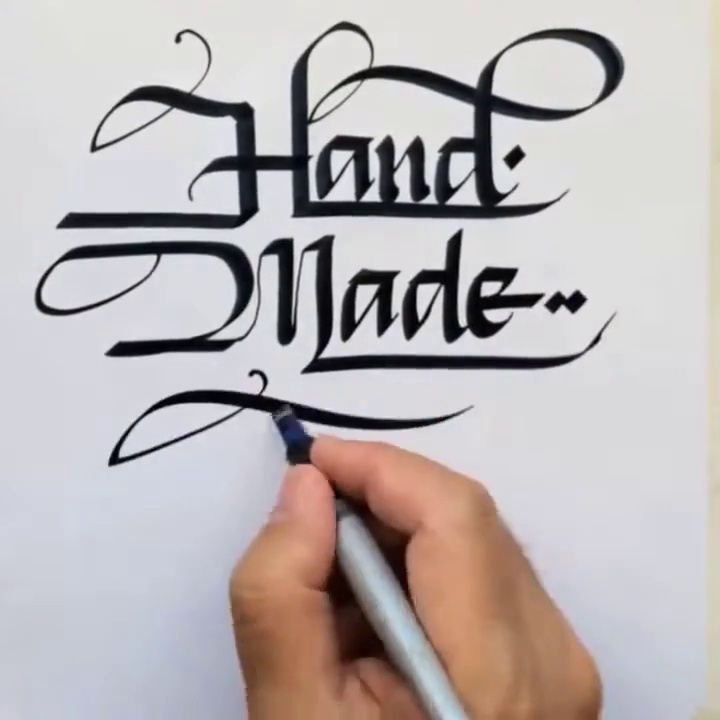 Hand.
Made..